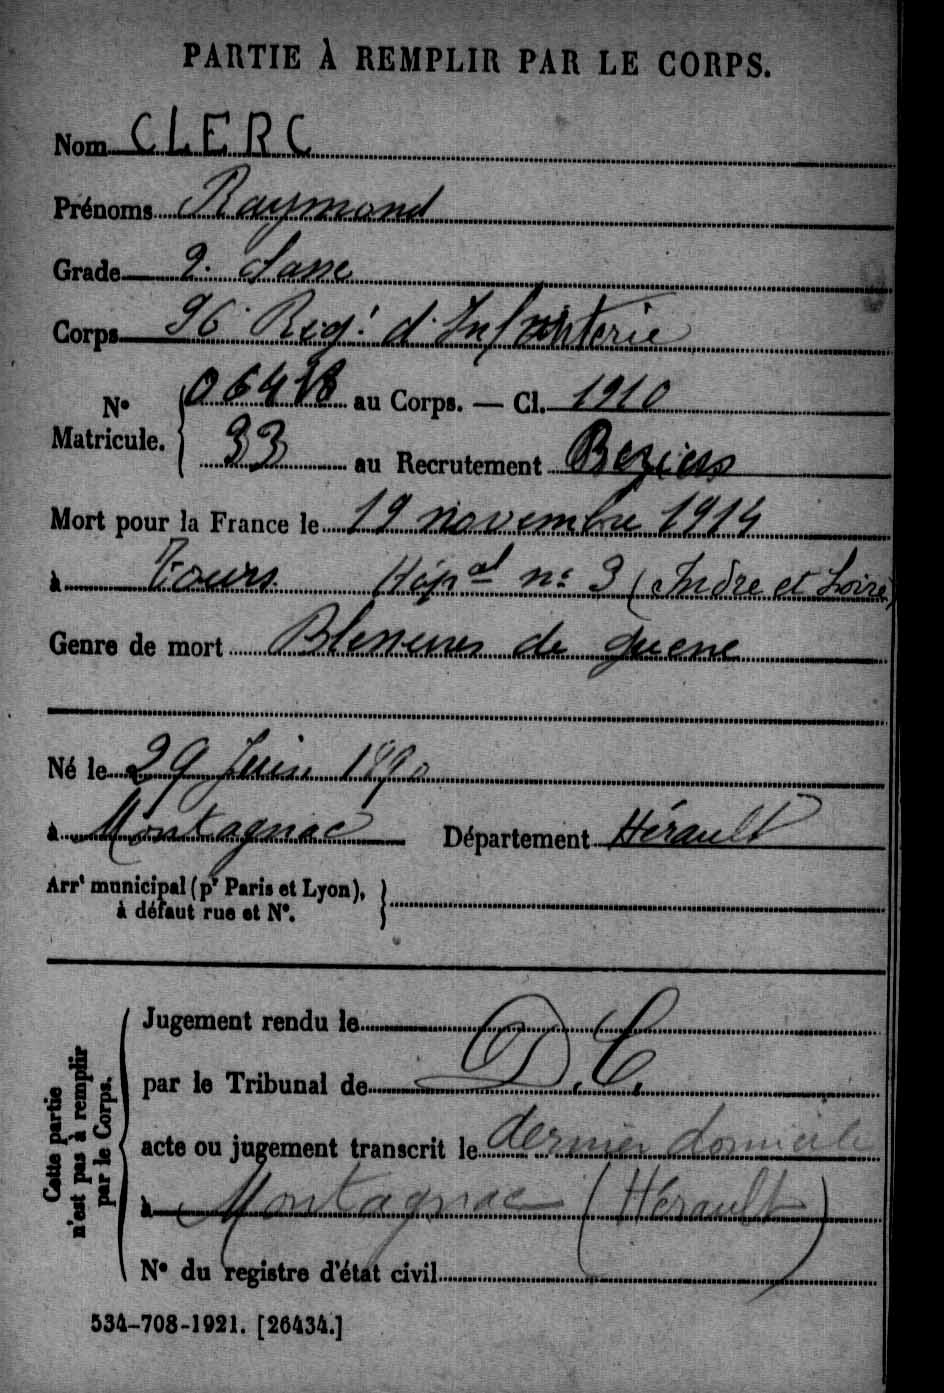 PARTIE À REMPLIR PAR LE CORPS.
Nom CLERC
Prénoms Raymond
Grade 2e classe
Corps 96e Régt d'Infanterie
N° Matricule. { au Corps. — Cl. 1910
33 au Recrutement Beziers
Mort pour la France le 19 novembre 1914
à Tours Hôpal n° 3 (Indre et Loire)
Genre de mort Blessures de guerre
Né le 29 Juin 1890
à Montagnac Département Hérault
Arrt municipal (pr Paris et Lyon), à défaut rue et N°. }
Cette partie n'est pas à remplir par le Corps. {
Jugement rendu le
par le Tribunal de D.C.
acte ou jugement transcrit le dernier domicile
à Montagnac (Hérault)
N° du registre d'état civil
534-708-1921. [26434.]